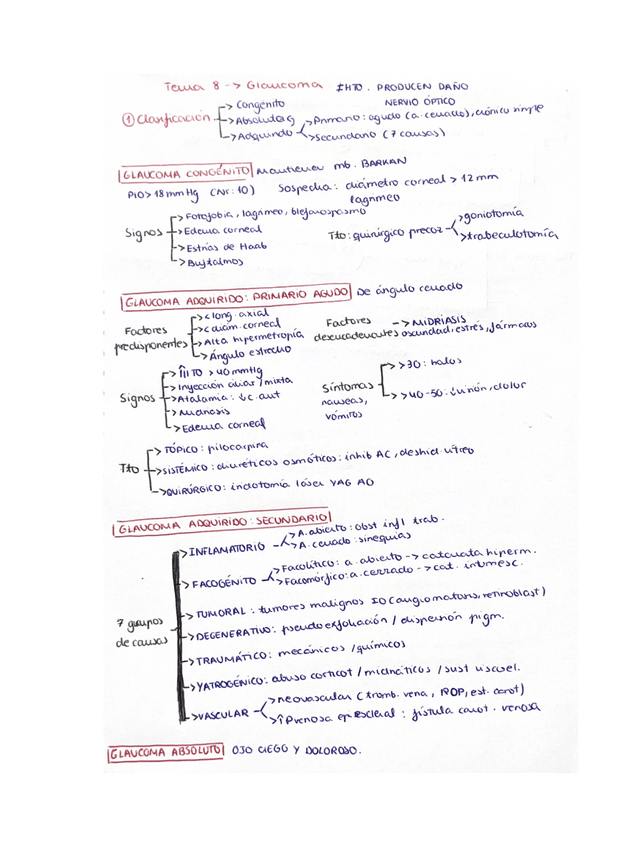 Tema 8 -> Glaucoma ≠HTO. PRODUCEN DAÑO
NERVIO ÓPTICO
① Clasificación
-> Congénito
-> Absoluto
-> Adquirido
-> Primario: agudo (a. cerrado), crónico simple
-> Secundario (7 causas)
GLAUCOMA CONGÉNITO Mantienen mb. BARKAN
PIO > 18 mmHg (Nr: 10) Sospecha: diámetro corneal > 12 mm
lagrimeo
Signos
-> Fotofobia, lagrimeo, blefarospasmo
-> Edema corneal
-> Estrías de Haab
-> Buftalmos
Tto: quirúrgico precoz
-> goniotomía
-> trabeculotomía
GLAUCOMA ADQUIRIDO: PRIMARIO AGUDO De ángulo cerrado
Factores
predisponentes
-> < long. axial
-> < diám. corneal
-> Alta hipermetropía
-> Ángulo estrecho
Factores
descencadenantes
-> MIDRIASIS
oscuridad, estrés, fármacos
Signos
-> ↑↑↑TO > 40 mmHg
-> Inyección ciliar / mixta
-> Atalamia: ↓c. ant
-> Midriasis
-> Edema corneal
Síntomas
nauseas,
vómitos
-> >30: halos
-> >40-50: ↓visión, dolor
Tto
-> TÓPICO: pilocarpina
-> SISTÉMICO: diuréticos osmóticos: inhib AC, deshid. vítreo
-> QUIRÚRGICO: iridotomía láser YAG AO
GLAUCOMA ADQUIRIDO: SECUNDARIO
7 grupos
de causas
-> INFLAMATORIO
-> A. abierto: obst infl trab.
-> A. cerrado: sinequias
-> FACOGÉNITO
-> Facolítico: a. abierto -> catarata hiperm.
-> Facomórfico: a. cerrado -> cat. intumesc.
-> TUMORAL: tumores malignos IO (angiomatosis, retinoblast)
-> DEGENERATIVO: pseudoexfoliación / dispersión pigm.
-> TRAUMÁTICO: mecánicos / químicos
-> YATROGÉNICO: abuso corticot / midriáticos / sust viscoel.
-> VASCULAR
-> neovascular (tromb. vena, RDP, est. carot)
-> ↑Pvenosa epiescleral: fístula carot. venosa
GLAUCOMA ABSOLUTO OJO CIEGO Y DOLOROSO.